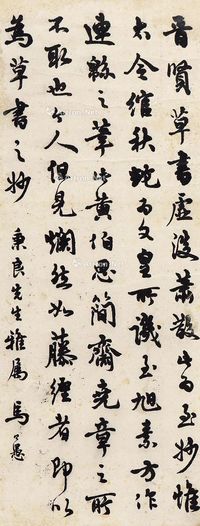 晉賢草書虛淡蕭散此為至妙惟
大令綰秋蛇為文皇所譏至旭素方作
連緜之筆此黃伯思簡齋堯章之所
不取也今人但見爛然如藤纏者即以
為草書之妙 秉良先生雅屬 馬公愚